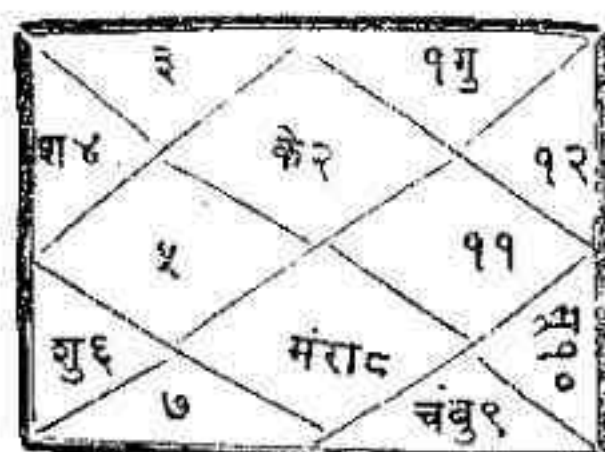 ३ १गु
श४ के२ १२
५ ११
शु६ मंरा८ सू१०
७ चंबु९